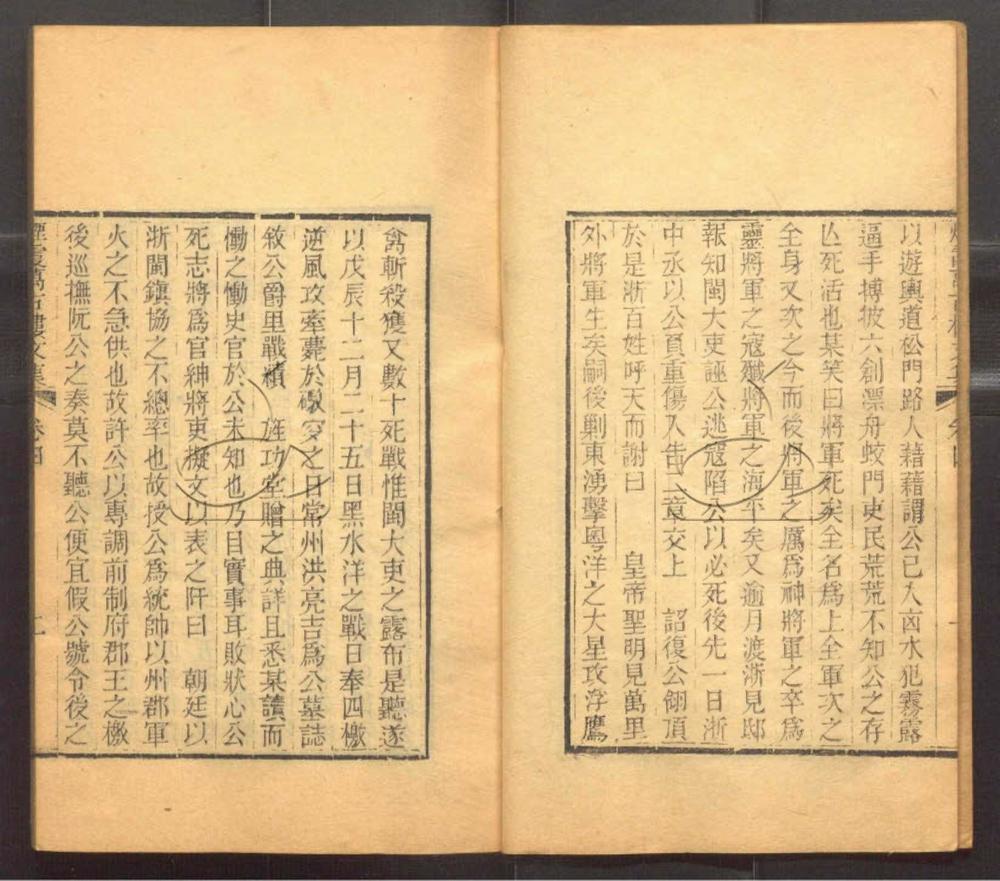 以遊輿道松門路人藉藉謂公已入㐫水犯霧露
逼手搏彼六創漂舟蛟門吏民荒荒不知公之存
亾死活也某笑曰將軍死矣全名爲上全軍次之
全身又次之今而後將軍之厲爲神將軍之卒爲
靈將軍之寇殲將軍之海平矣又逾月渡浙見邸
報知閩大吏誣公逃寇陷公以必死後先一日浙
中丞以公負重傷入告二章交上　詔復公翎頂
於是浙百姓呼天而謝曰　皇帝聖明見萬里
外將軍生矣嗣後剿東湧擊粵洋之大星攻浮鷹
禽斬殺獲又數十死戰惟閩大吏之露布是聽遂
以戊辰十二月二十五日黑水洋之戰日奉四檄
逆風攻牽薨於礮穸之日常州洪亮吉爲公墓誌
敘公爵里戰績　旌功堂贈之典詳且悉某讀而
慟之慟史官於公未知也乃目實事耳敗狀心公
死志將爲官紳將吏擬文以表之阡曰　朝廷以
浙閩鎮協之不總率也故授公爲統帥以州郡軍
火之不急供也故許公以專調前制府郡王之檄
後巡撫阮公之奏莫不聽公便宜假公號令後之
煙霞萬古樓文集　卷四　二